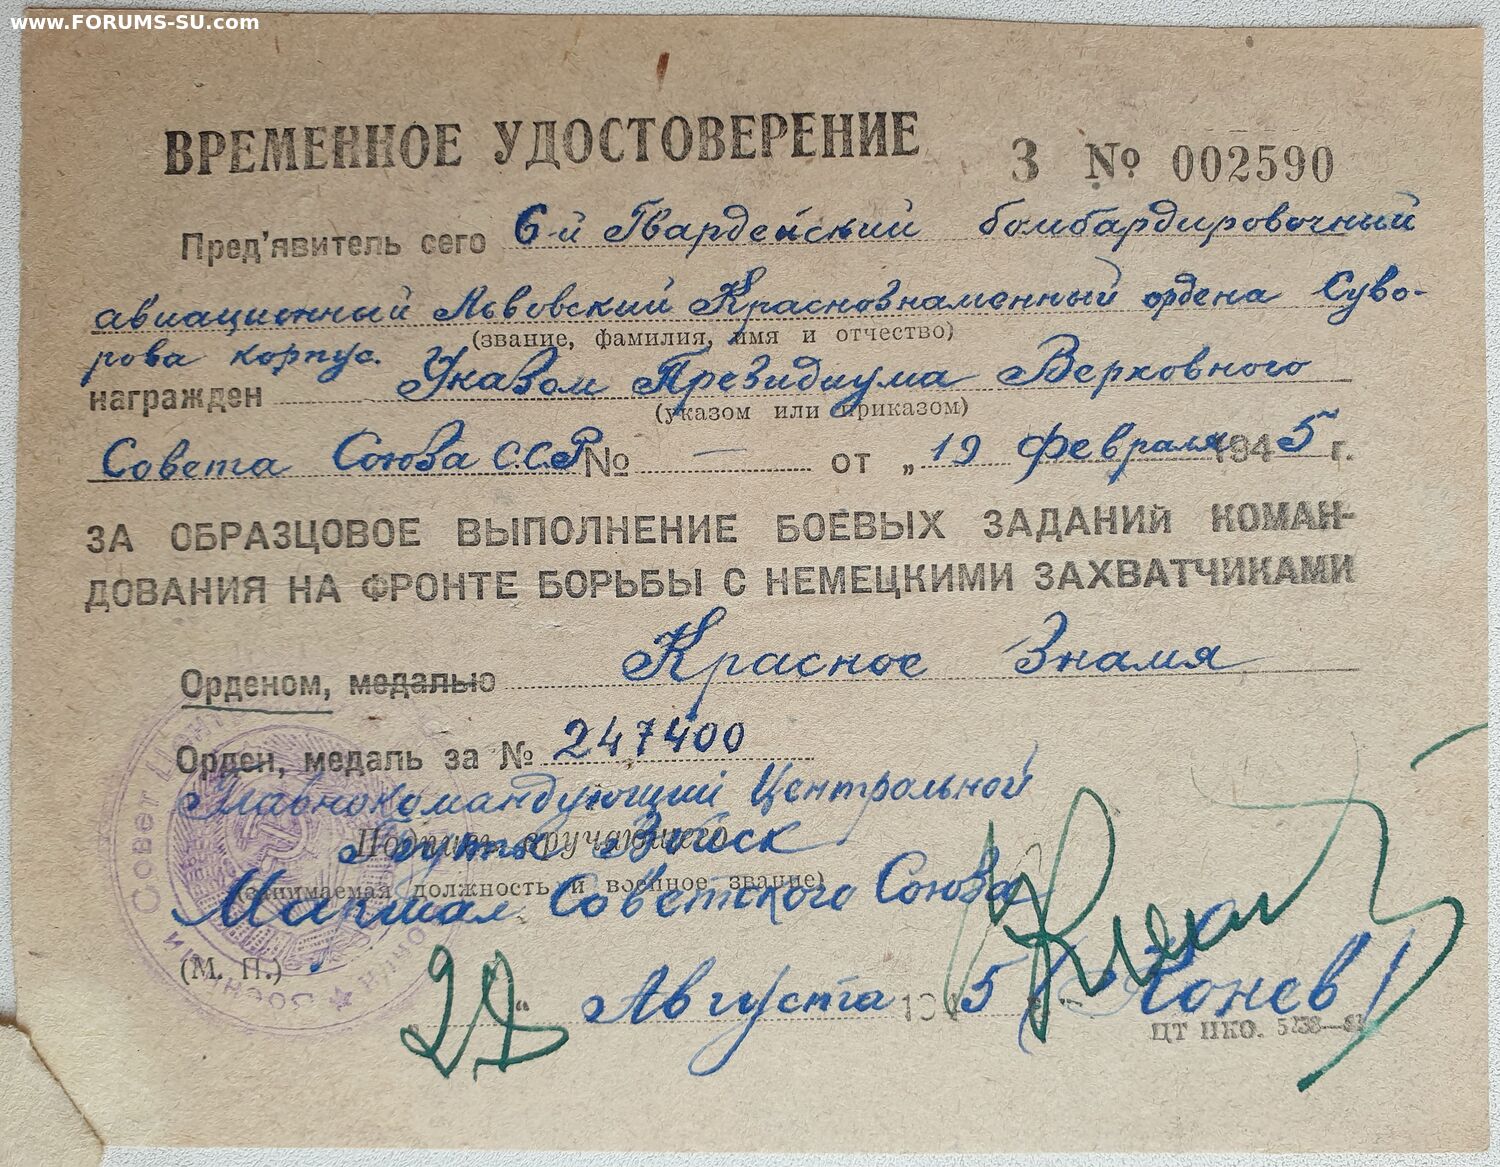 www.FORUMS-SU.com
ВРЕМЕННОЕ УДОСТОВЕРЕНИЕ З № 002590
Пред'явитель сего 6-й Гвардейский бомбардировочный
авиационный Львовский Краснознаменный ордена Суво-
(звание, фамилия, имя и отчество)
рова корпус.
награжден Указом Президиума Верховного
(указом или приказом)
Совета Союза С.С.Р № — от „19 февраля 1945 г.
ЗА ОБРАЗЦОВОЕ ВЫПОЛНЕНИЕ БОЕВЫХ ЗАДАНИЙ КОМАН-
ДОВАНИЯ НА ФРОНТЕ БОРЬБЫ С НЕМЕЦКИМИ ЗАХВАТЧИКАМИ
Орденом, медалью Красное Знамя
Орден, медаль за № 247400
Главнокомандующий Центральной
Подпись вручающего
Группы Войск
(занимаемая должность и военное звание)
Маршал Советского Союза
(М. П.)
" Августа 1945 г. (Конев)
ЦТ НКО. 5238—
Военный Совет